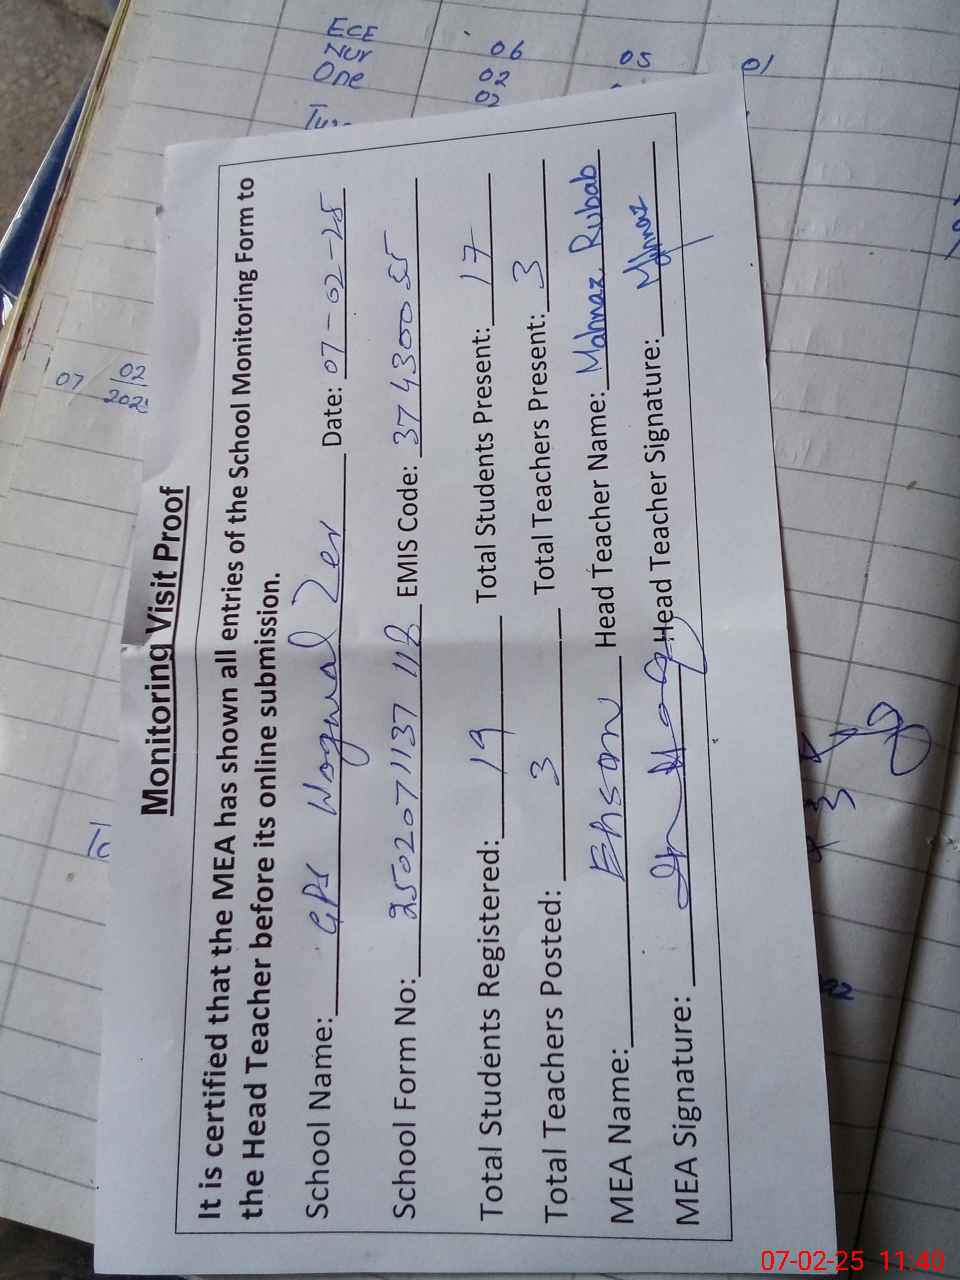 ECE
Nur 06 05 01
One 02
02
07 / 02
Monitoring Visit Proof
It is certified that the MEA has shown all entries of the School Monitoring Form to
the Head Teacher before its online submission.
School Name: GPS Date: 07-02-25
School Form No: EMIS Code: 37430055
Total Students Registered: 19 Total Students Present: 17
Total Teachers Posted: 3 Total Teachers Present: 3
MEA Name: Ehsan Head Teacher Name: Mahnaz Rubab
MEA Signature: Head Teacher Signature: Mahnaz
07-02-25 11:40